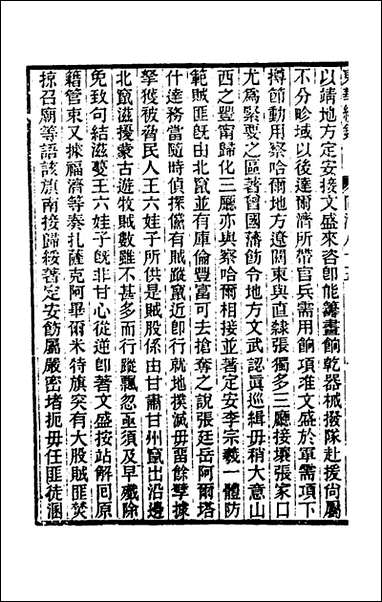 以靖地方定安接文盛來咨卽能籌畫餉乾器械撥隊赴援尚屬
不分畛域以後達爾濟所帶官兵需用餉項准文盛於軍需項下
撙節動用察哈爾地方遼闊東與直隸張獨多三廳接壤張家口
尤爲緊要之區著曾國藩飭令地方文武認眞巡緝毋稍大意山
西之豐甯歸化三廳亦與察哈爾相接並著定安李宗羲一體防
範賊匪旣由北竄並有庫倫豐富可去搶奪之說張廷岳阿爾塔
什達務當隨時偵探儻有賊蹤竄近卽行就地撲滅毋留餘孼據
拏獲被脅民人王六娃子所供是賊股係由甘肅甘州竄出沿邊
北竄滋擾蒙古遊牧賊數雖不甚多而行蹤飄忽亟須及早殲除
免致句結滋蔓王六娃子旣非甘心從逆卽著文盛按站解回原
籍管束又據福濟等奏扎薩克阿畢爾米特旗突有大股賊匪焚
掠召廟等語該旗南接歸綏著定安飭屬嚴密堵扼毋任匪徒溷